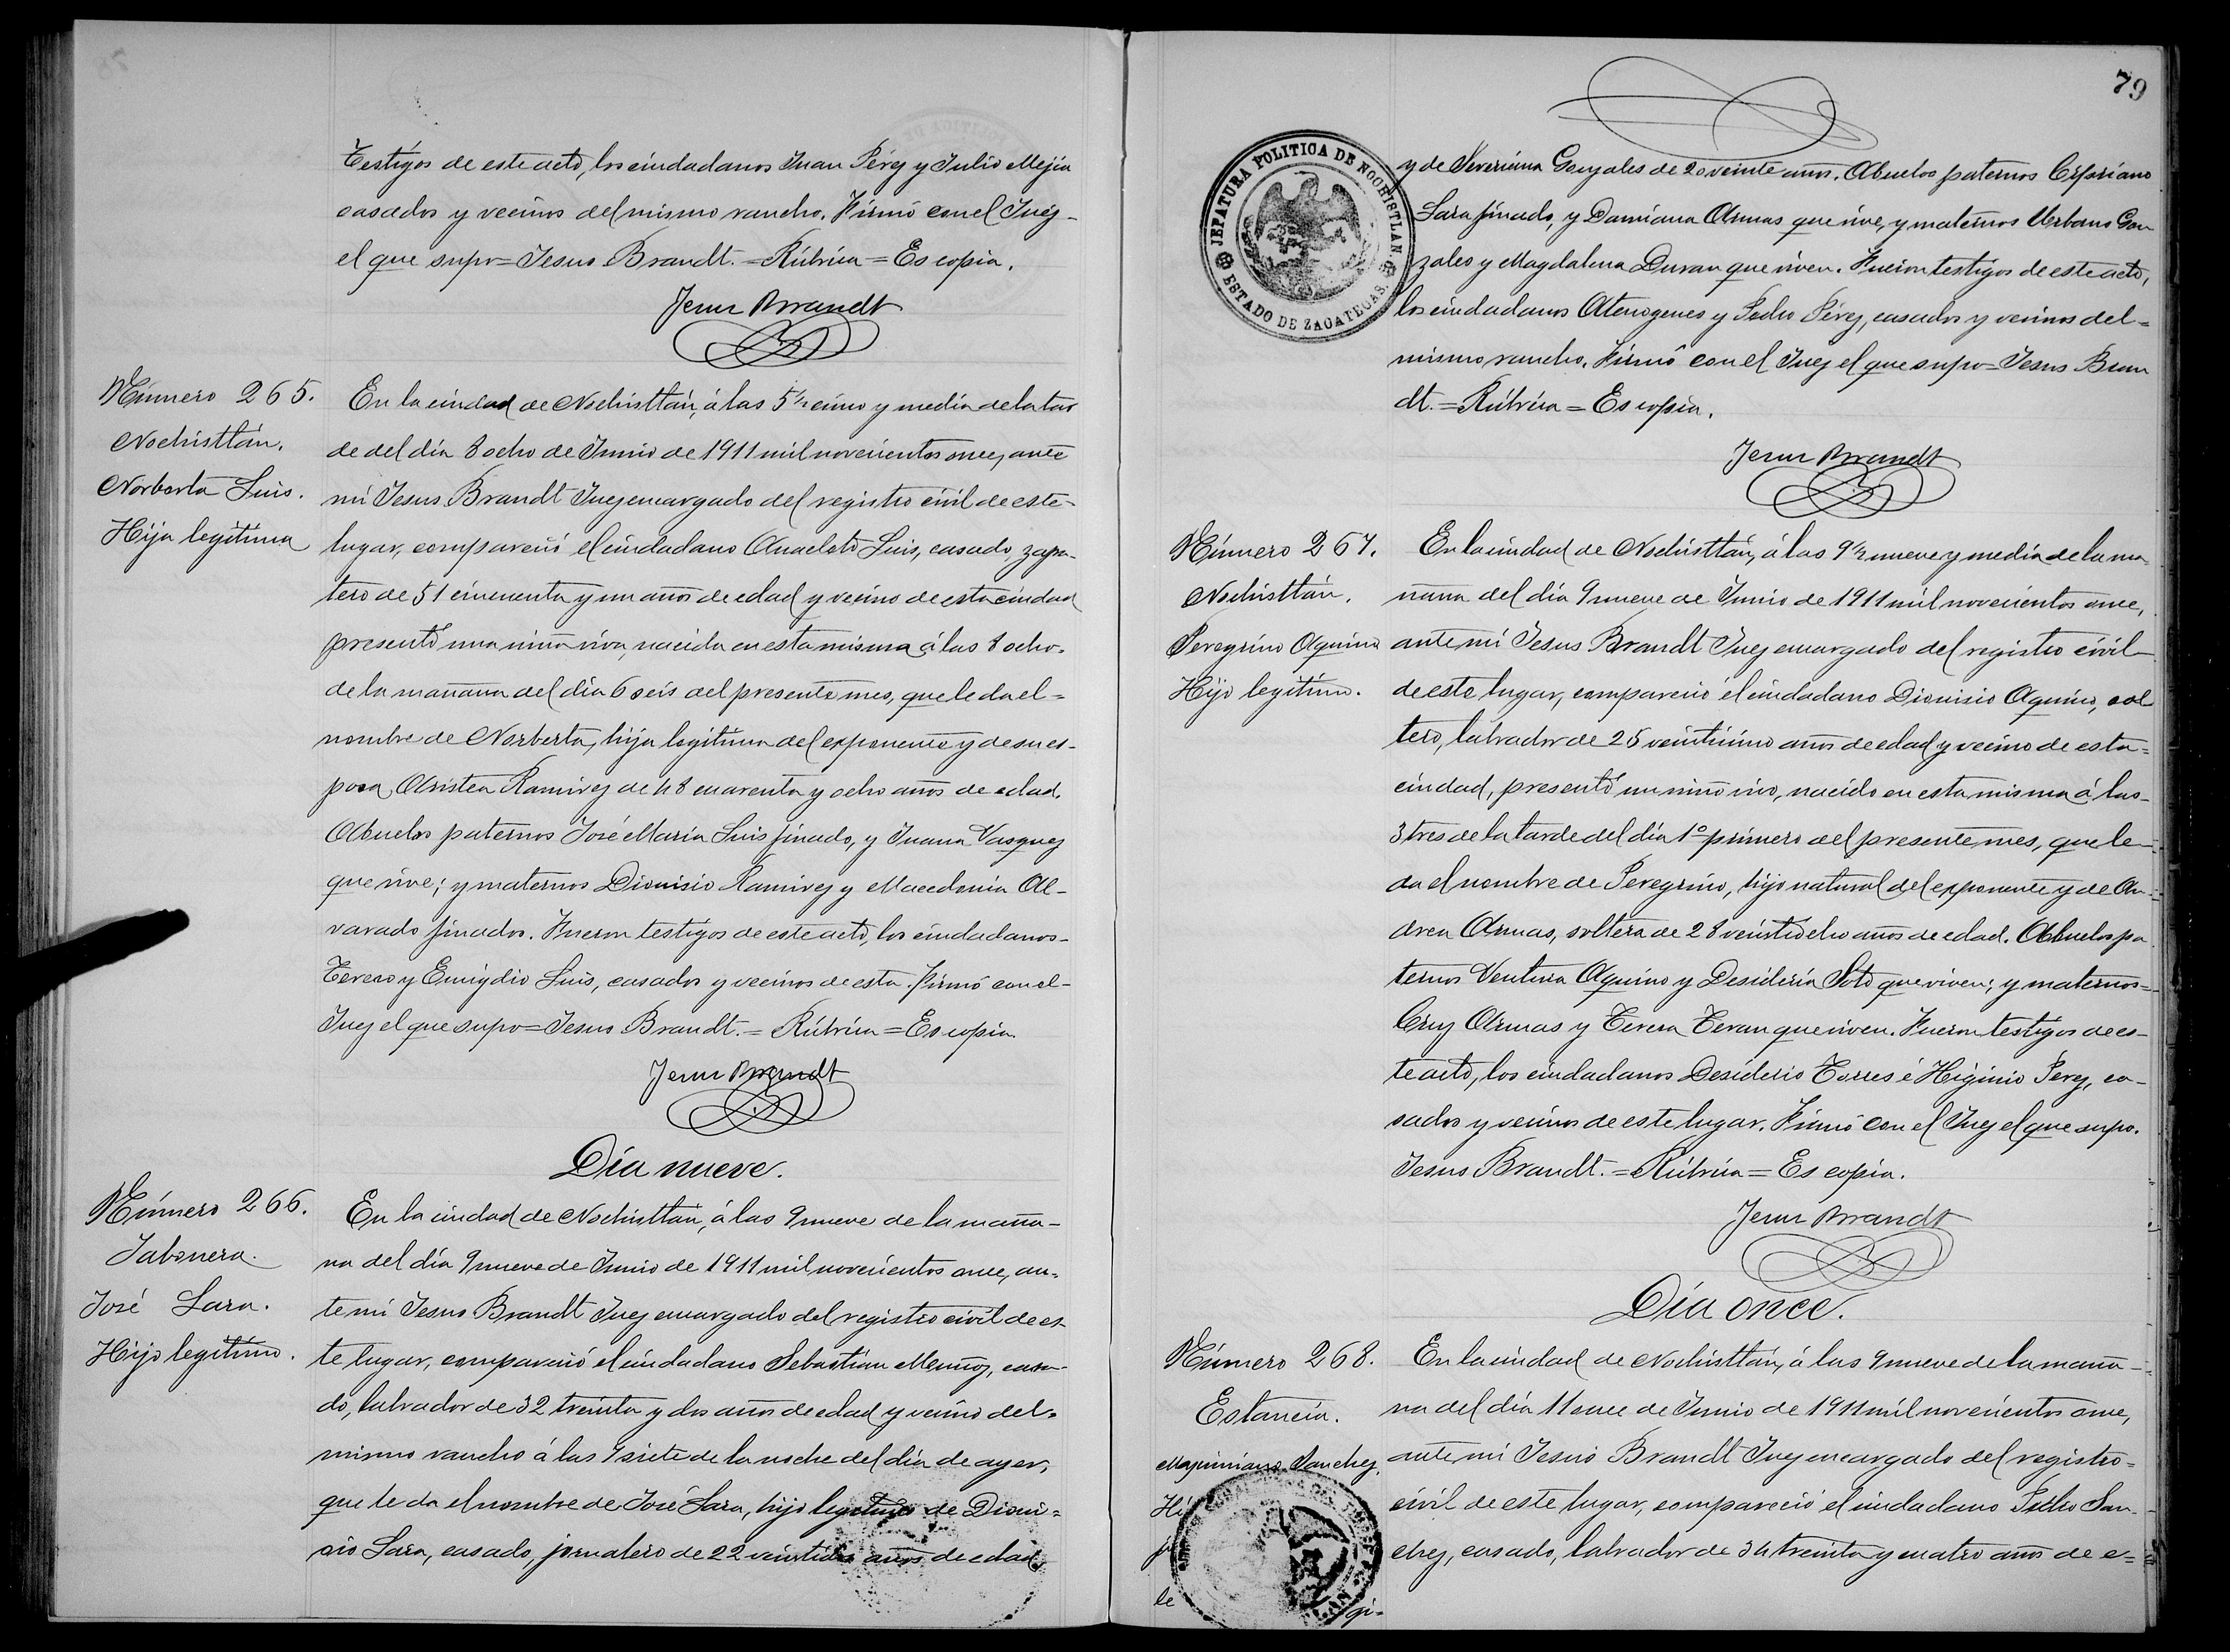 Testigos de este acto, los ciudadanos Juan Pérez y Julio Mejía
casados y vecinos del mismo rancho. Firmó con el Juez-
el que supo= Jesus Brandt.= Rúbrica= Es copia.
Jesus Brandt
Número 265.
Nochistlán.
Norberta Luis.
Hija legítima
En la ciudad de Nochistlán, á las 5½ cinco y media de la tar
de del día 8 ocho de Junio de 1911 mil novecientos once, ante
mi Jesus Brandt Juez encargado del registro civil de este-
lugar, compareció el ciudadano Anacleto Luis, casado, zapa-
tero de 51 cincuenta y un años de edad y vecino de esta ciudad
presentó una niña viva, nacida en esta misma á las 8 ocho.
de la mañana del día 6 seis del presente mes, que le da el=
nombre de Norberta, hija legítima del exponente y de su es-
posa, Aristea Ramirez de 48 cuarenta y ocho años de edad.
Abuelos paternos José María Luis finado, y Juana Vasquez
que vive; y maternos Dionisio Ramirez y Macedonia Al-
varado finados. Fueron testigos de este acto, los ciudadanos-
y Emigdio Luis, casados y vecinos de esta. Firmó con el-
Juez el que supo= Jesus Brandt.= Rúbrica= Es copia.
Jesus Brandt
Día nueve.
Número 266.
Jabonera.
José Lara.
Hijo legítimo.
En la ciudad de Nochistlán, á las 9 nueve de la maña-
na del día 9 nueve de Junio de 1911 mil novecientos once, an-
te mi Jesus Brandt Juez encargado del registro civil de es-
te lugar, compareció el ciudadano Sebastián Muñoz, casa-
do, labrador de 32 treinta y dos años de edad y vecino del=
mismo rancho á las 7 siete de la noche del día de ayer,
que le da el nombre de José Lara, hijo legítimo de Dioni=
sio Lara, casado, jornalero de 22 veintidos años de edad,
79
JEFATURA POLITICA DE NOCHISTLAN
ESTADO DE ZACATECAS.
y de Severiana Gonzales de 20 veinte años. Abuelos paternos Cipriano
Lara finado, y Damiana Armas que vive, y maternos Urbano Gon
zales y Magdalena Duran que viven. Fueron testigos de este acto,
los ciudadanos Atenogenes y Pedro Pérez, casados y vecinos del=
mismo rancho. Firmó con el Juez el que supo= Jesus Bran
dt.= Rúbrica= Es copia.
Jesus Brandt
Número 267.
Nochistlán.
Peregrino Aquino
Hijo legítimo.
En la ciudad de Nochistlán, á las 9½ nueve y media de la ma
ñana del día 9 nueve de Junio de 1911 mil novecientos once,
ante mi Jesus Brandt Juez encargado del registro civil-
de este lugar, compareció el ciudadano Dionisio Aquino, sol
tero, labrador de 25 veinticinco años de edad y vecino de esta=
ciudad, presentó un niño vivo, nacido en esta misma á las-
3 tres de la tarde del día 1º primero del presente mes, que le-
da el nombre de Peregrino, hijo natural del exponente y de An-
drea Armas, soltera de 28 veintiocho años de edad. Abuelos pa
ternos Ventura Aquino y Desideria Soto que viven; y maternos=
Cruz Armas y Teresa Teran que viven. Fueron testigos de es-
te acto, los ciudadanos Desiderio Torres é Higinio Perez, ca-
sados y vecinos de este lugar. Firmó con el Juez el que supo.
Jesus Brandt.= Rúbrica= Es copia.
Jesus Brandt
Día once.
Número 268.
Estancia.
Maximiano Sanchez.
Hi
jo
le gi=
En la ciudad de Nochistlán, á las 9 nueve de la maña-
na del día 11 once de Junio de 1911 mil novecientos once,
ante mi Jesus Brandt Juez encargado del registro=
civil de este lugar, compareció el ciudadano Pedro San-
chez, casado, labrador de 34 treinta y cuatro años de e=